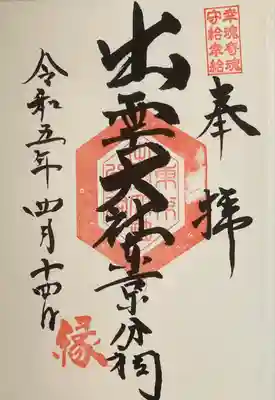 幸魂奇魂
守給幸給
奉拝
出雲大社東京分祠
令和五年四月十四日
縁